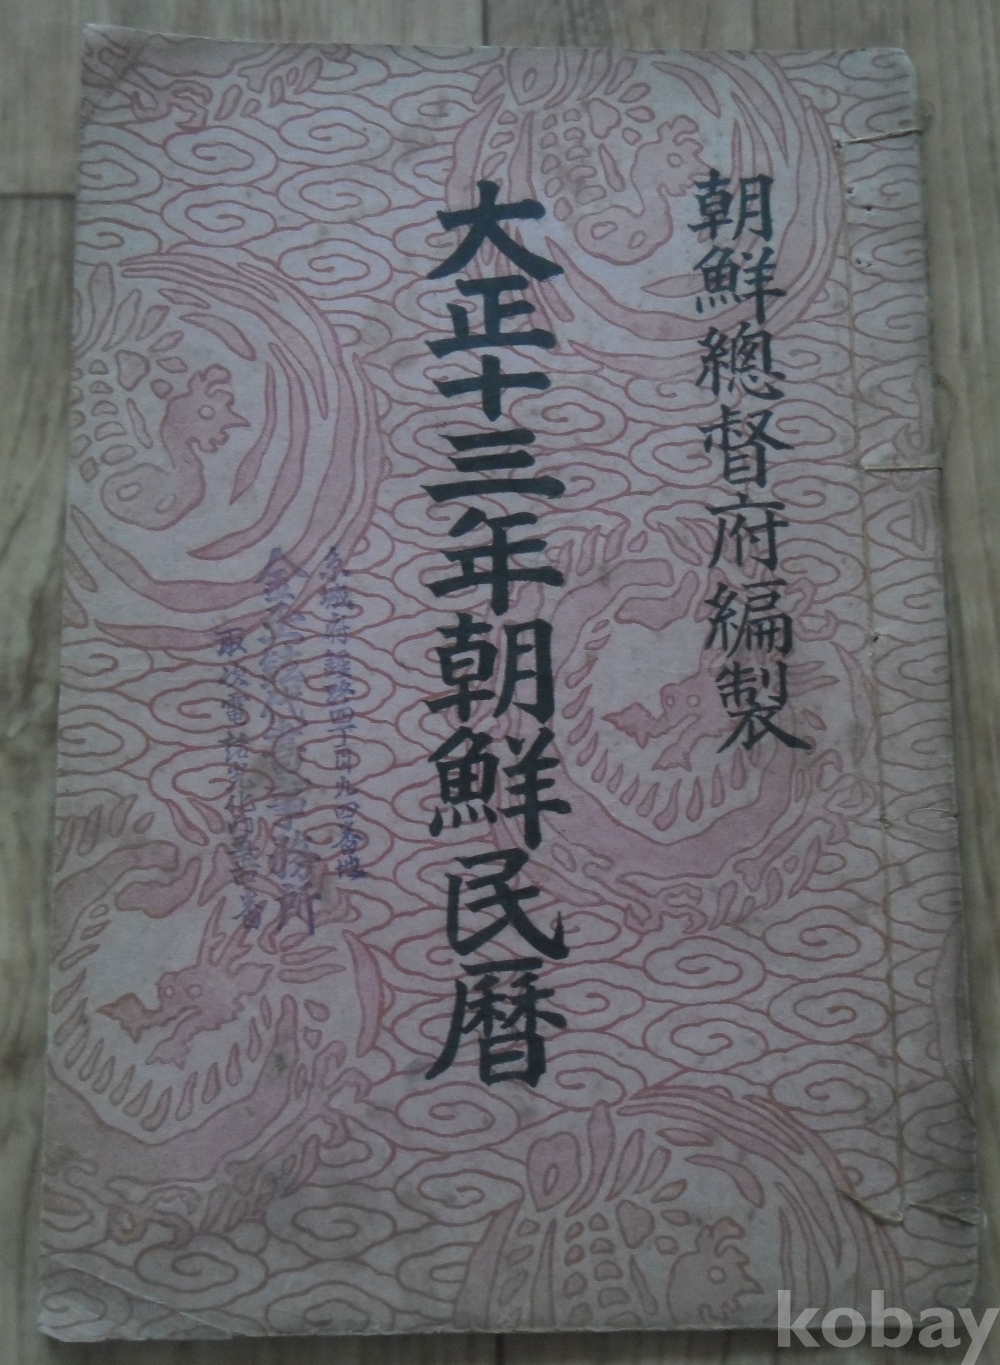 朝鮮總督府編製
大正十三年朝鮮民曆
四十四番地
事務所
取次電話
kobay